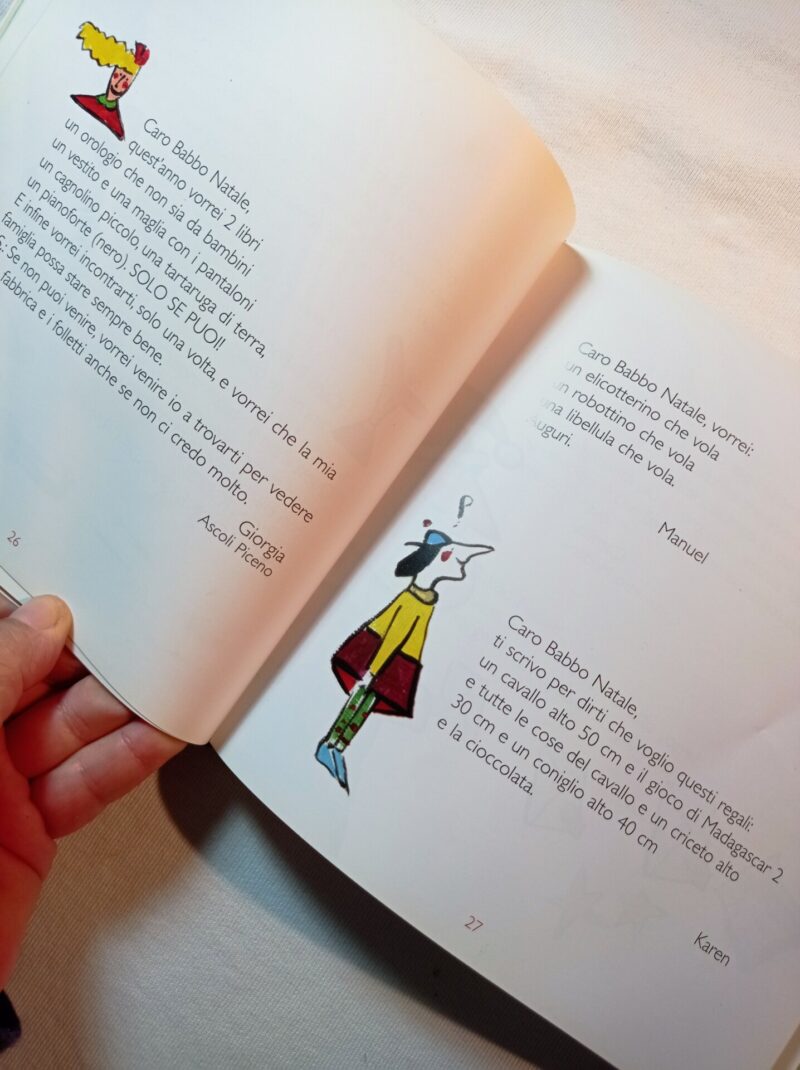 Caro Babbo Natale,
quest'anno vorrei 2 libri
un orologio che non sia da bambini
un vestito e una maglia con i pantaloni
un cagnolino piccolo, una tartaruga di terra,
un pianoforte (nero). SOLO SE PUOI!
E infine vorrei incontrarti, solo una volta, e vorrei che la mia
famiglia possa stare sempre bene.
Se non puoi venire, vorrei venire io a trovarti per vedere
fabbrica e i folletti anche se non ci credo molto.
Giorgia
Ascoli Piceno
26
Caro Babbo Natale, vorrei:
un elicotterino che vola
un robottino che vola
una libellula che vola.
Auguri.
Manuel
Caro Babbo Natale,
ti scrivo per dirti che voglio questi regali:
un cavallo alto 50 cm e il gioco di Madagascar 2
e tutte le cose del cavallo e un criceto alto
30 cm e un coniglio alto 40 cm
e la cioccolata.
Karen
27